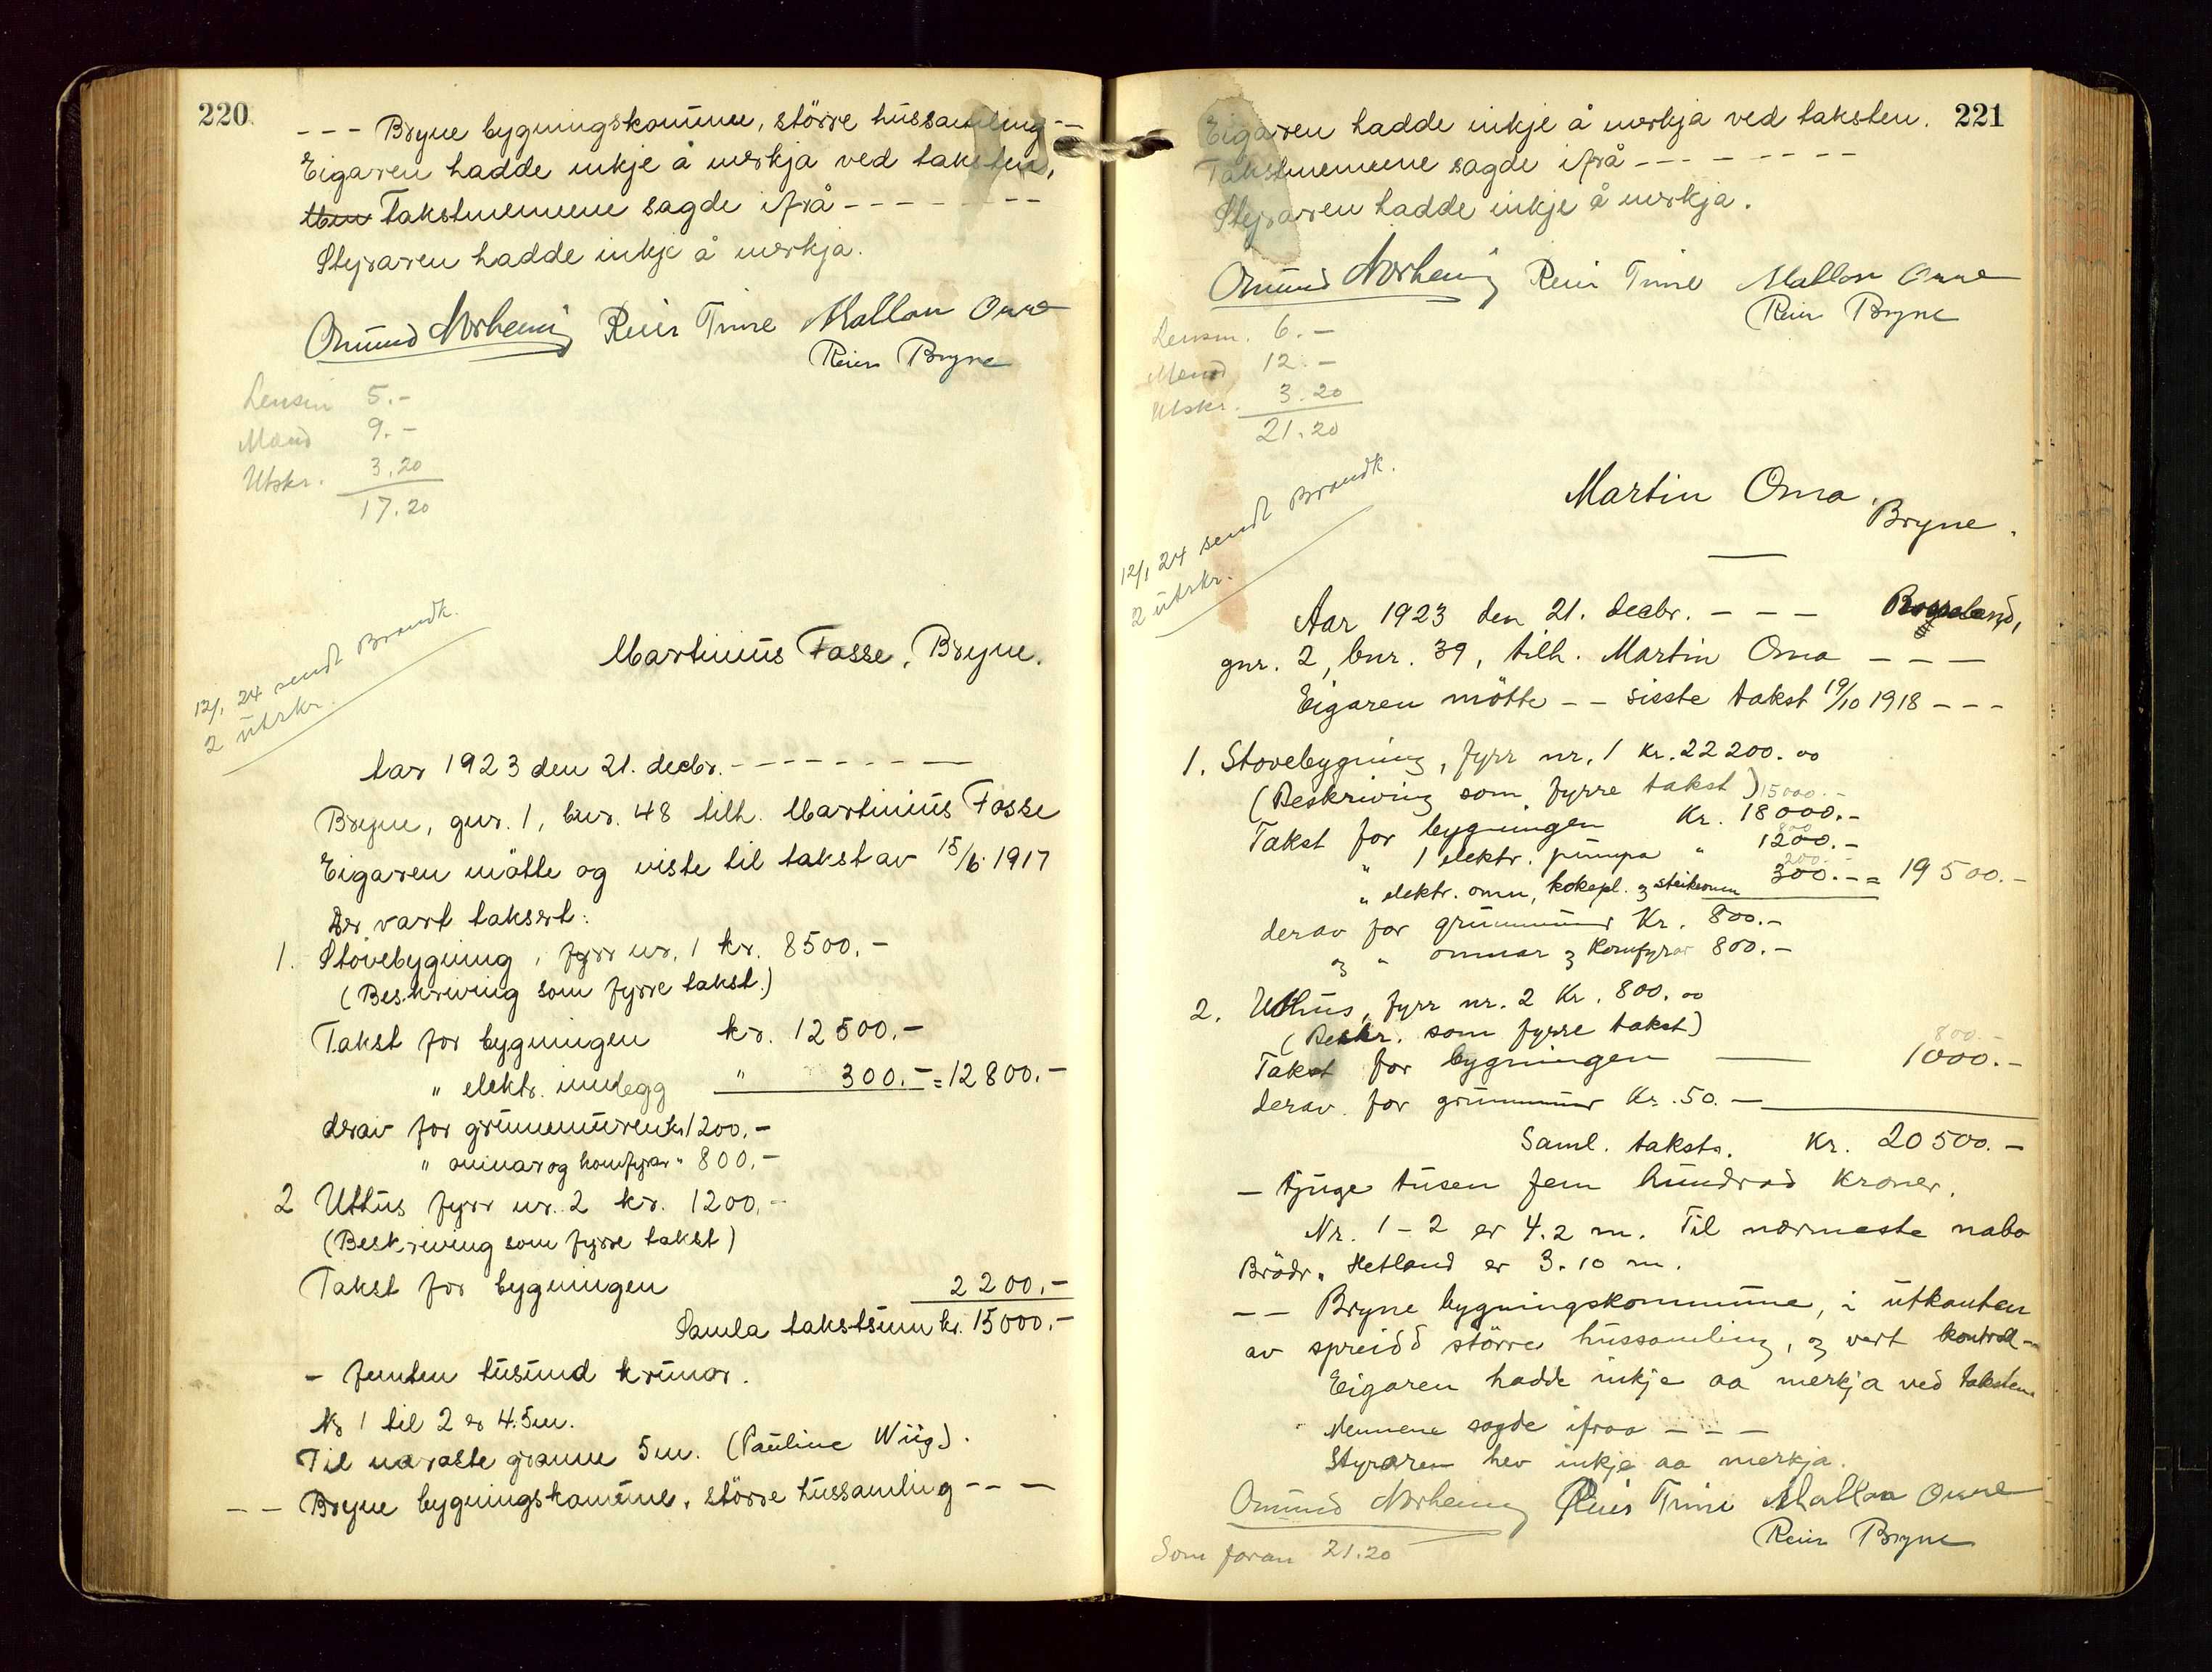 220
- - - Bryne bygningskomune, större hussamling - -
Eigaren hadde inkje å merkja ved taksten,
Takstmennene sagde ifrå - - - - - - - -
Styraren hadde inkje å merkja.
Omund Norheim Reier Trine Mallon Oma
Reier Bryne
Lensm 5.-
Mend 9.-
Utskr. 3.20
17.20
12/1 24 sendt Brandk.
2 utskr.
Martinius Fosse, Bryne.
Aar 1923 den 21. decbr. - - - - - - - -
Bryne, gnr. 1, bnr. 48 tilh. Martinius Fosse
Eigaren mötte og viste til takst av 15/6 1917
Der vart taksert:
1. Stovebygning, fyrr nr. 1 kr. 8500.-
(Beskriving som fyrre takst.)
Takst for bygningen kr. 12500.-
" elektr. innlegg " 300.- = 12800.-
derav for grunnmuren kr 1200.-
" omnar og komfyrar " 800.-
2 Uthus fyrr nr. 2 kr. 1200.-
(Beskriving som fyrre takst)
Takst for bygningen 2200.-
Samla takstsum kr. 15000.-
- femten tusund krunor.
Nr 1 til 2 er 4.5m.
Til næraste granne 5m. (Pauline Wiig).
- - Bryne bygningskomune, större hussamling - - -
221
Eigaren hadde inkje å merkja ved taksten.
Takstmennene sagde ifrå - - - - - - - -
Styraren hadde inkje å merkja.
Omund Norheim Reier Trine Mallon Oma
Reier Bryne
Lensm. 6.-
Mend 12.-
Utskr. 3.20
21.20
12/1 24 sendt Brandk.
2 utskr.
Martin Oma,
Bryne.
Aar 1923 den 21. decbr. - - - Rosseland,
gnr. 2, bnr. 39, tilh. Martin Oma - - -
Eigaren mötte - - sisste takst 19/10 1918 - - -
1. Stovebygning, fyrr nr. 1 Kr. 22200.00
(Beskriving som fyrre takst) 15000.-
Takst for bygningen Kr. 18000.-
800
" 1 elektr. pumpa " 1200.-
200.-
" elektr. omn, kokepl. og steikeomn 300.- = 19500.-
derav for grunnmur Kr. 800.-
og " omnar og Komfyrar 800.-
2. Uthus, fyrr nr. 2 Kr. 800.00
(Beskr. som fyrre takst)
800.-
Takst for bygningen 1000.-
derav for grunnmur Kr. 50.-
Saml. takst. Kr. 20500.-
- tjuge tusen fem hundrad kroner.
Nr. 1-2 er 4.2 m. Til nærmeste nabo
Brödr. Hetland er 3.10 m.
- - Bryne bygningskommune, i utkanten
av spreidd större hussamling, og vert kontroll-
Eigaren hadde inkje aa merkja ved taksten.
Mennene sagde ifraa - - -
Styraren hev inkje aa merkja.
Omund Norheim Reier Trine Mallon Oma
Reier Bryne
Som foran 21.20